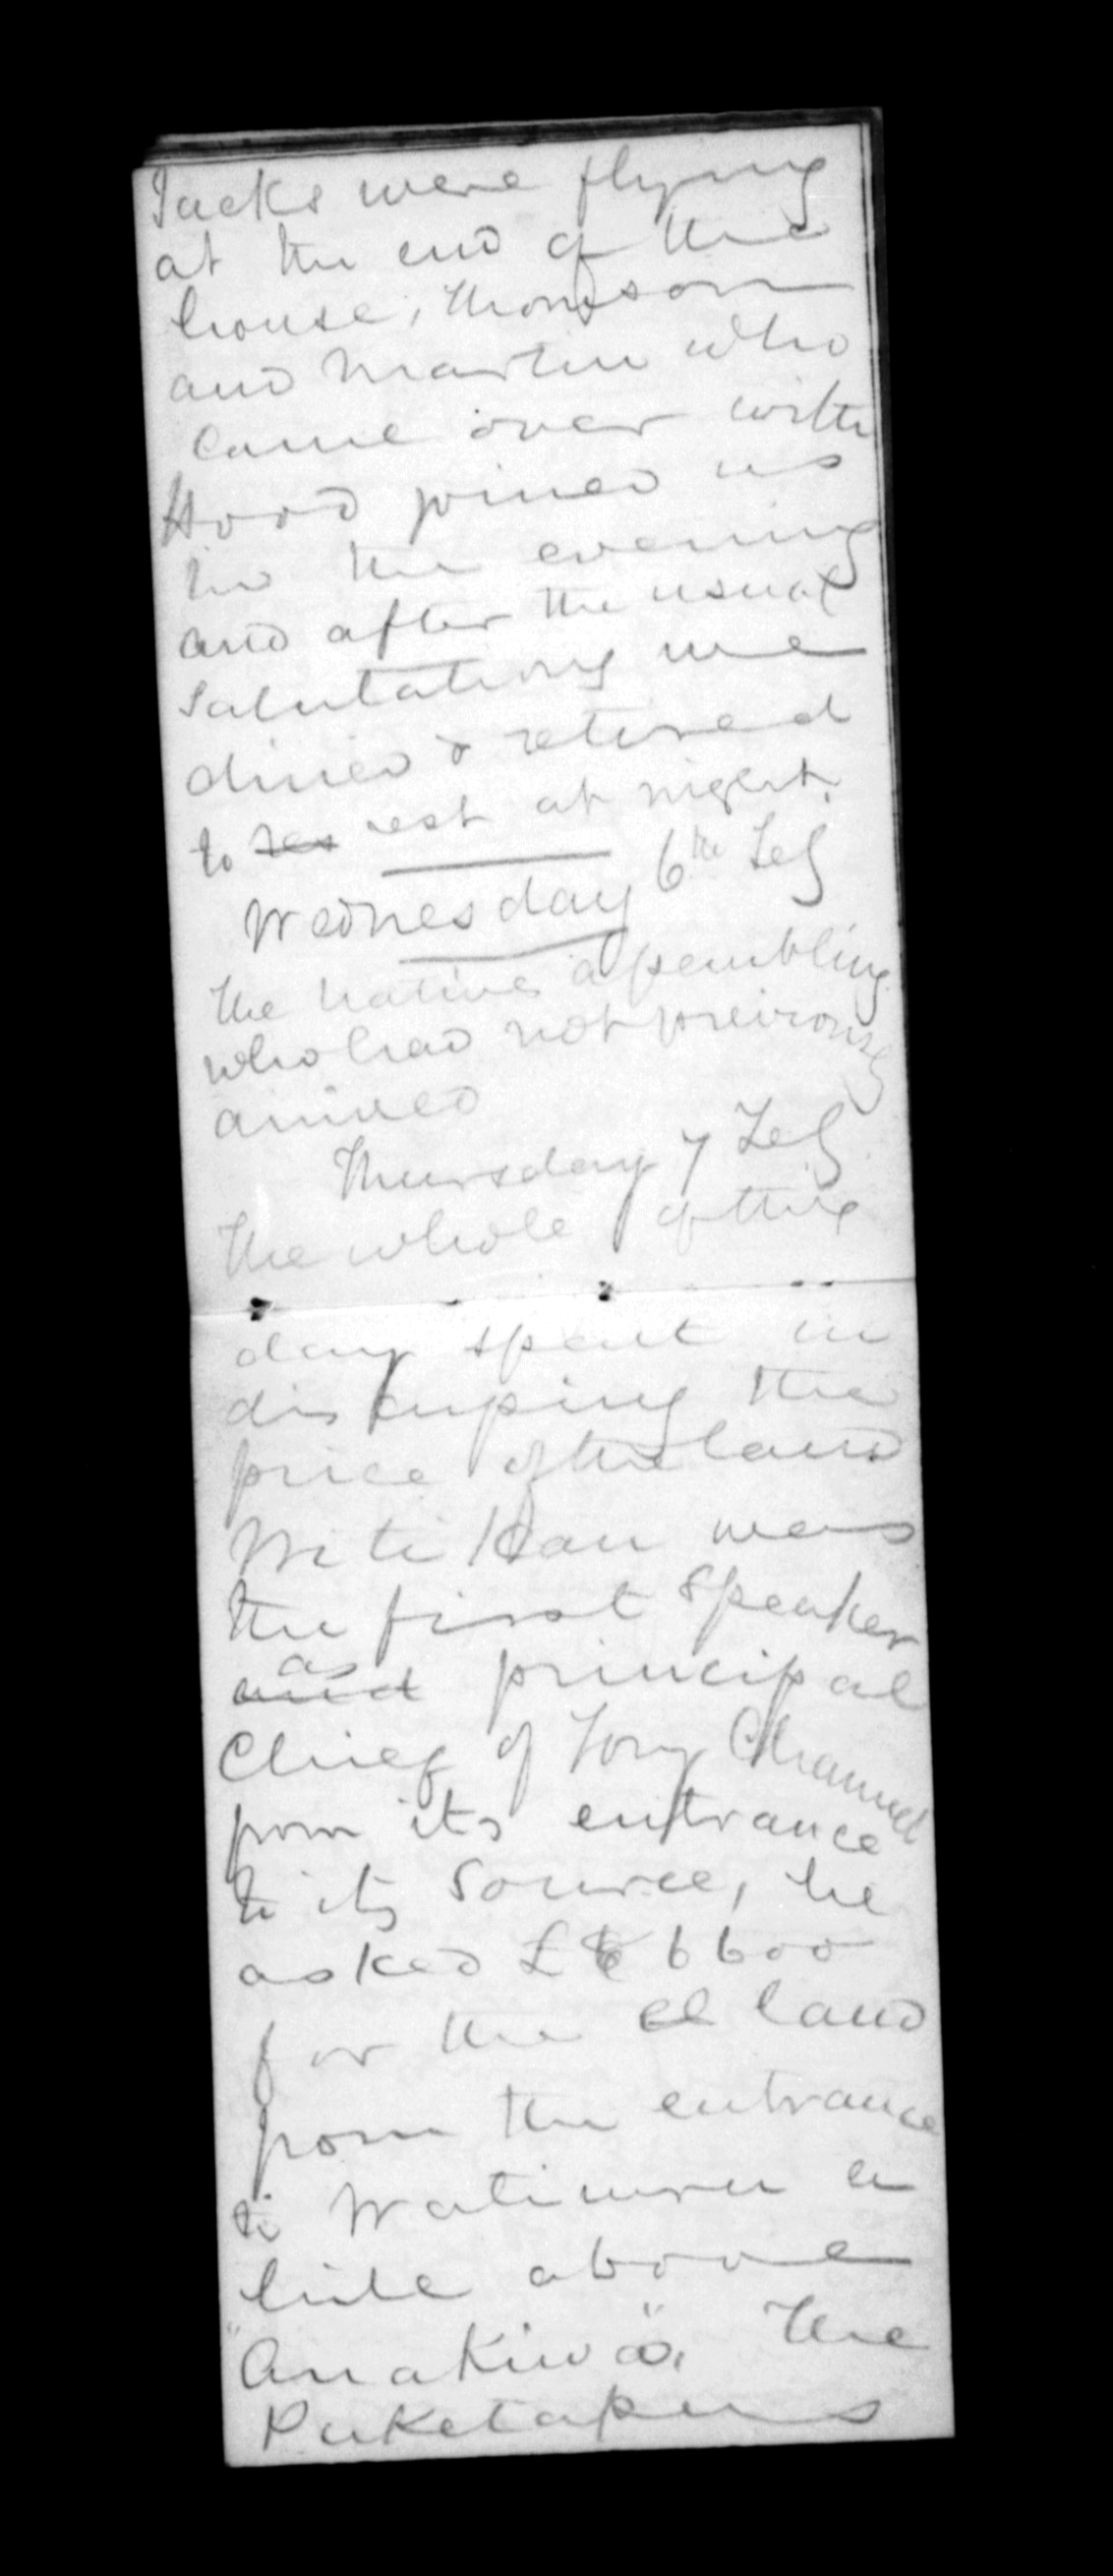 Jacks were flying
at the end of the
house, Thomson
and Martin who
came over with
Hood joined us
in the evening
and after the usual
salutations we
dined & retired
to res rest at night.
Wednesday 6th Feb
The natives assembling
who had not previously
arrived
Thursday 7 Feb
The whole of this
day spent in
discussing the
price of the land
Wi ti kau was
the first speaker
and as principal
Chief of Tory Channel
from its entrance
to its source, he
asked £ 6600
for the land
from the entrance
to a
little above
"Anakiwa". The
Puketapus